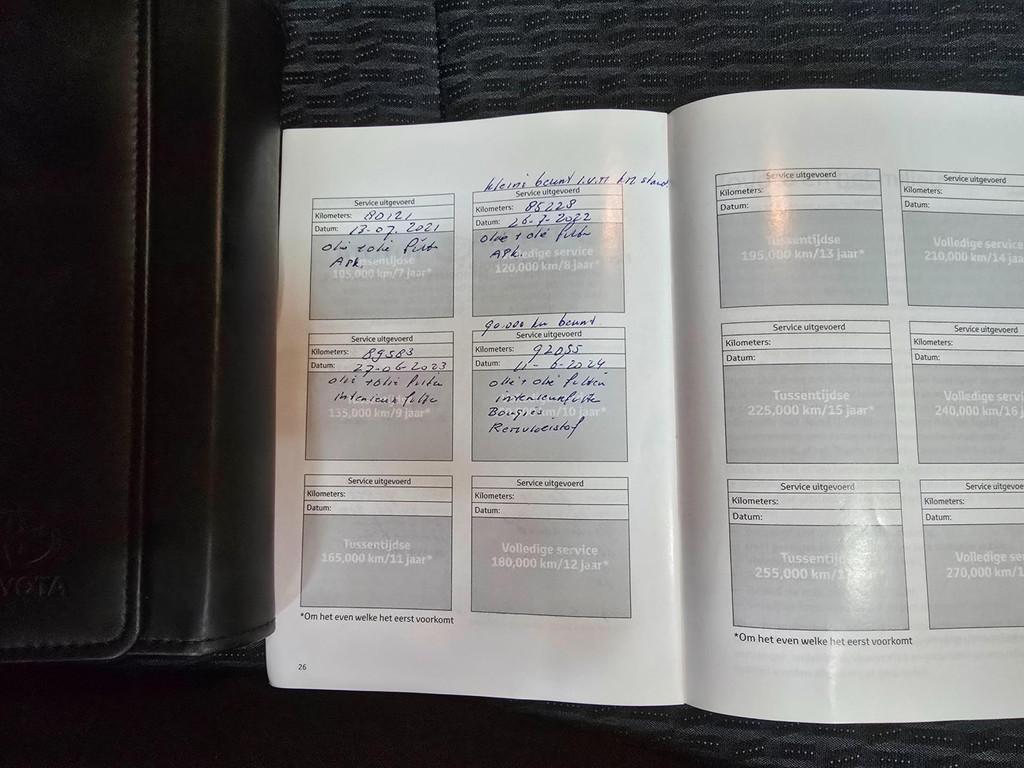 Service uitgevoerd
Kilometers: 80121
Datum: 13-07. 2021
olie + olie filter
APK.
Tussentijdse
105,000 km/7 jaar*
kleine beurt i.v.m km stand
Service uitgevoerd
Kilometers: 85228
Datum: 26-7-2022
olie + olie filter
APK.
Volledige service
120,000 km/8 jaar*
Service uitgevoerd
Kilometers: 89583
Datum: 27-06-2023
olie + olie filter
interieurfilter
135,000 km/9 jaar*
90.000 km beurt
Service uitgevoerd
Kilometers: 92055
Datum: 11-6-2024
olie + olie filter
interieurfilter
Bougies
Remvloeistof
km/10 jaar*
Service uitgevoerd
Kilometers:
Datum:
Tussentijdse
165,000 km/11 jaar*
Service uitgevoerd
Kilometers:
Datum:
Volledige service
180,000 km/12 jaar*
*Om het even welke het eerst voorkomt
26
Service uitgevoerd
Kilometers:
Datum:
Tussentijdse
195,000 km/13 jaar*
Service uitgevoerd
Kilometers:
Datum:
Volledige service
210,000 km/14 jaa
Service uitgevoerd
Kilometers:
Datum:
Tussentijdse
225,000 km/15 jaar*
Service uitgevoerd
Kilometers:
Datum:
Volledige service
240,000 km/16 j
Service uitgevoerd
Kilometers:
Datum:
Tussentijdse
255,000 km/17 jaar*
Service uitgevoe
Kilometers:
Datum:
Volledige ser
270,000 km/1
*Om het even welke het eerst voorkomt
YOTA